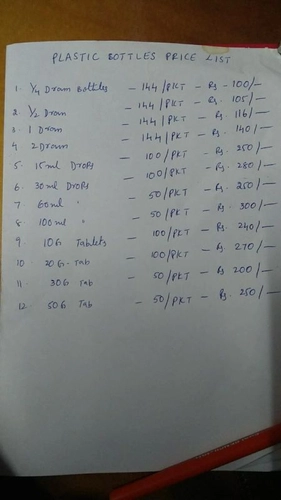 PLASTIC BOTTLES PRICE LIST
1. 1/4 Dram Bottles - 144/PKT - Rs - 100/-
2. 1/2 Dram - 144/PKT - Rs. 105/-
3. 1 Dram - 144/PKT - Rs. 116/-
4. 2 Dram - 144/PKT - Rs. 140/-
5. 15ml Drops - 100/PKT - Rs. 250/-
6. 30ml Drops - 100/PKT - Rs. 280/-
7. 60ml " - 50/PKT - Rs. 250/-
8. 100ml " - 50/PKT - Rs. 300/-
9. 10G Tablets - 100/PKT - Rs. 240/-
10. 20G-Tab - 100/PKT - Rs. 270/-
11. 30G Tab - 50/PKT - Rs 200/-
12. 50G Tab - 50/PKT - Rs. 250/-